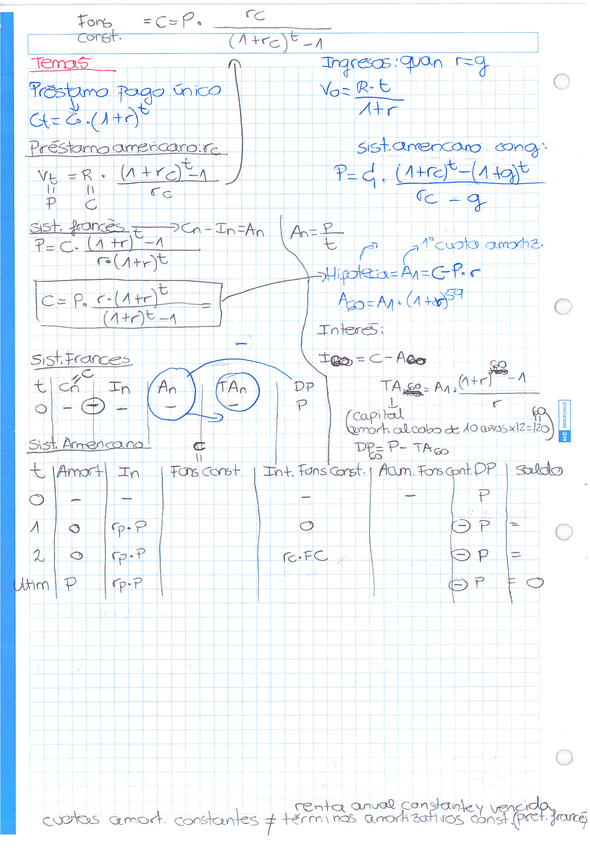 Fons const. = C = P · rc / ((1+rc)^t - 1)
Tema 5
Préstamo pago único
Ct = Co · (1+r)^t
Préstamo americano: rc
Vt = R · ((1+rc)^t - 1) / rc
P C
Ingresos: quan r=g
Vo = R·t / (1+r)
sist. americano conq:
P = C1 · ((1+rc)^t - (1+g)^t) / (rc - g)
sist. francés → Cn - In = An
P = C · ((1+r)^t - 1) / (r·(1+r)^t)
C = P · r·(1+r)^t / ((1+r)^t - 1) =
An = P / t
1ª cuota amortiz.
Hipoteca = A1 = C - P·r
A60 = A1 · (1+r)^59
Interés:
I60 = C - A60
TA60 = A1 · ((1+r)^60 - 1) / r
(capital amort. al cabo de 10 años x 12 = 120)
60
DP60 = P - TA60
Sist. Frances
t | Cn = C | In | An | TAn | DP
0 | - | - | - | - | P
Sist. Americano
C =
t | Amort | In | Fons Const | Int. Fons Const. | Acum. Fons Cont | DP | Saldo
0 | - | - | - | - | P
1 | 0 | rp·P | 0 | - P | =
2 | 0 | rp·P | rc·FC | - P | =
Ultim | P | rp·P | - P | = 0
renta anual constante y vencida
cuotas amort. constantes ≠ términos amortizativos const. (pret. francés